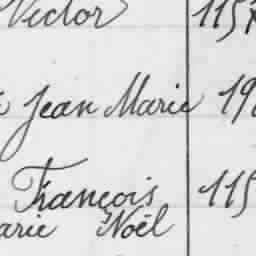 Victor 1157
Jean Marie 19
François 115
arie Noël